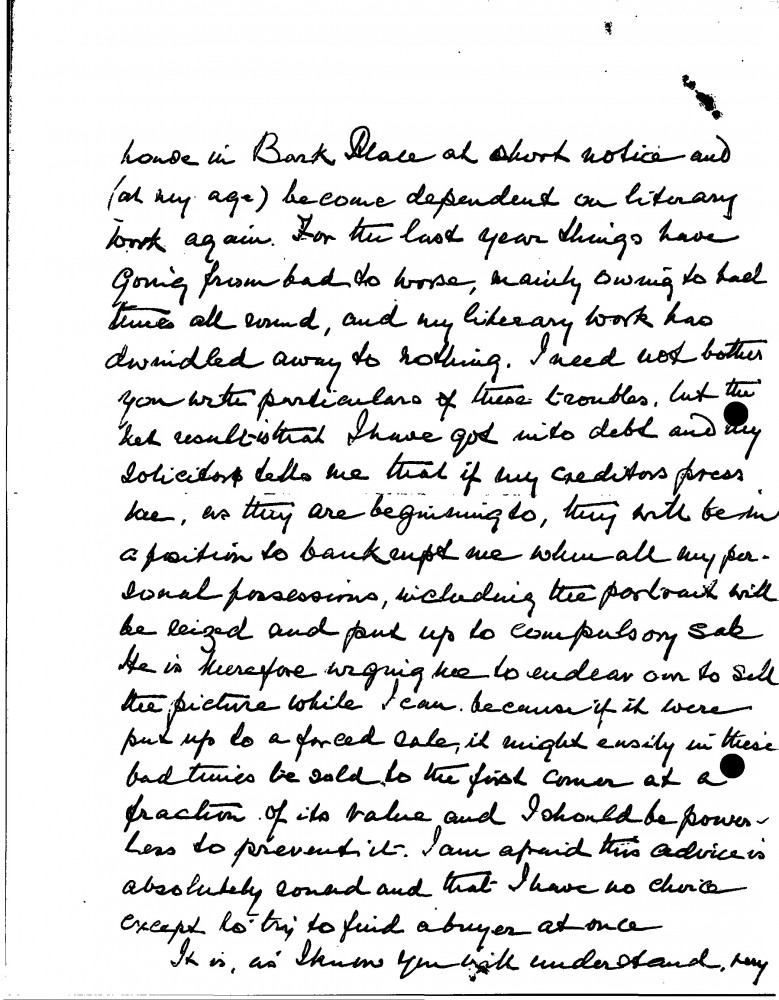 house in Bark Place at short notice and
(at my age) become dependent on literary
work again. For the last year things have
going from bad to worse, mainly owing to bad
times all round, and my literary work has
dwindled away to nothing. I need not bother
you with particulars of these troubles, but the
net result is that I have got into debt and my
solicitor tells me that if my creditors press
me, as they are beginning to, they will be in
a position to bankrupt me when all my per-
sonal possessions, including the portrait will
be seized and put up to compulsory sale
He is therefore urging me to endeavour to sell
the picture while I can. because if it were
put up to a forced sale, it might easily in these
bad times be sold to the first comer at a
fraction of its value and I should be power-
less to prevent it. I am afraid this advice is
absolutely sound and that I have no choice
except to try to find a buyer at once
It is, as I know you will understand, very